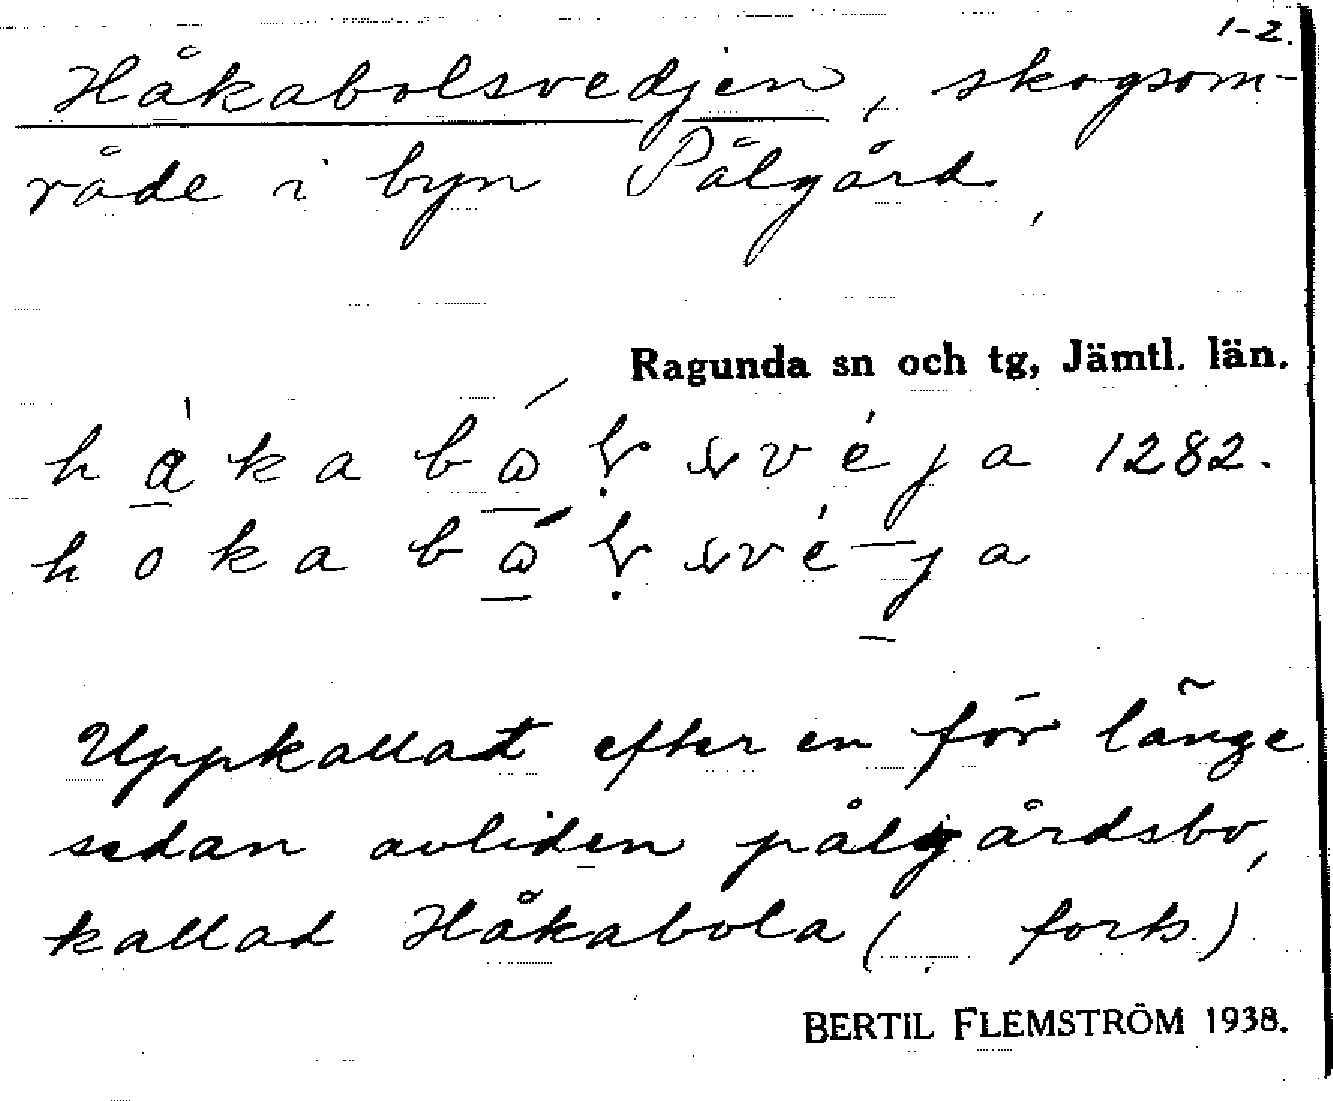 1-2.
Håkabolsvedjen, skogsom-
råde i byn Pålgård,
Ragunda sn och tg, Jämtl. län.
1282.
Uppkallat efter en för länge
sedan avliden pålgårdsbo,
kallad Håkabola ( forts.)
BERTIL FLEMSTRÖM 1938.